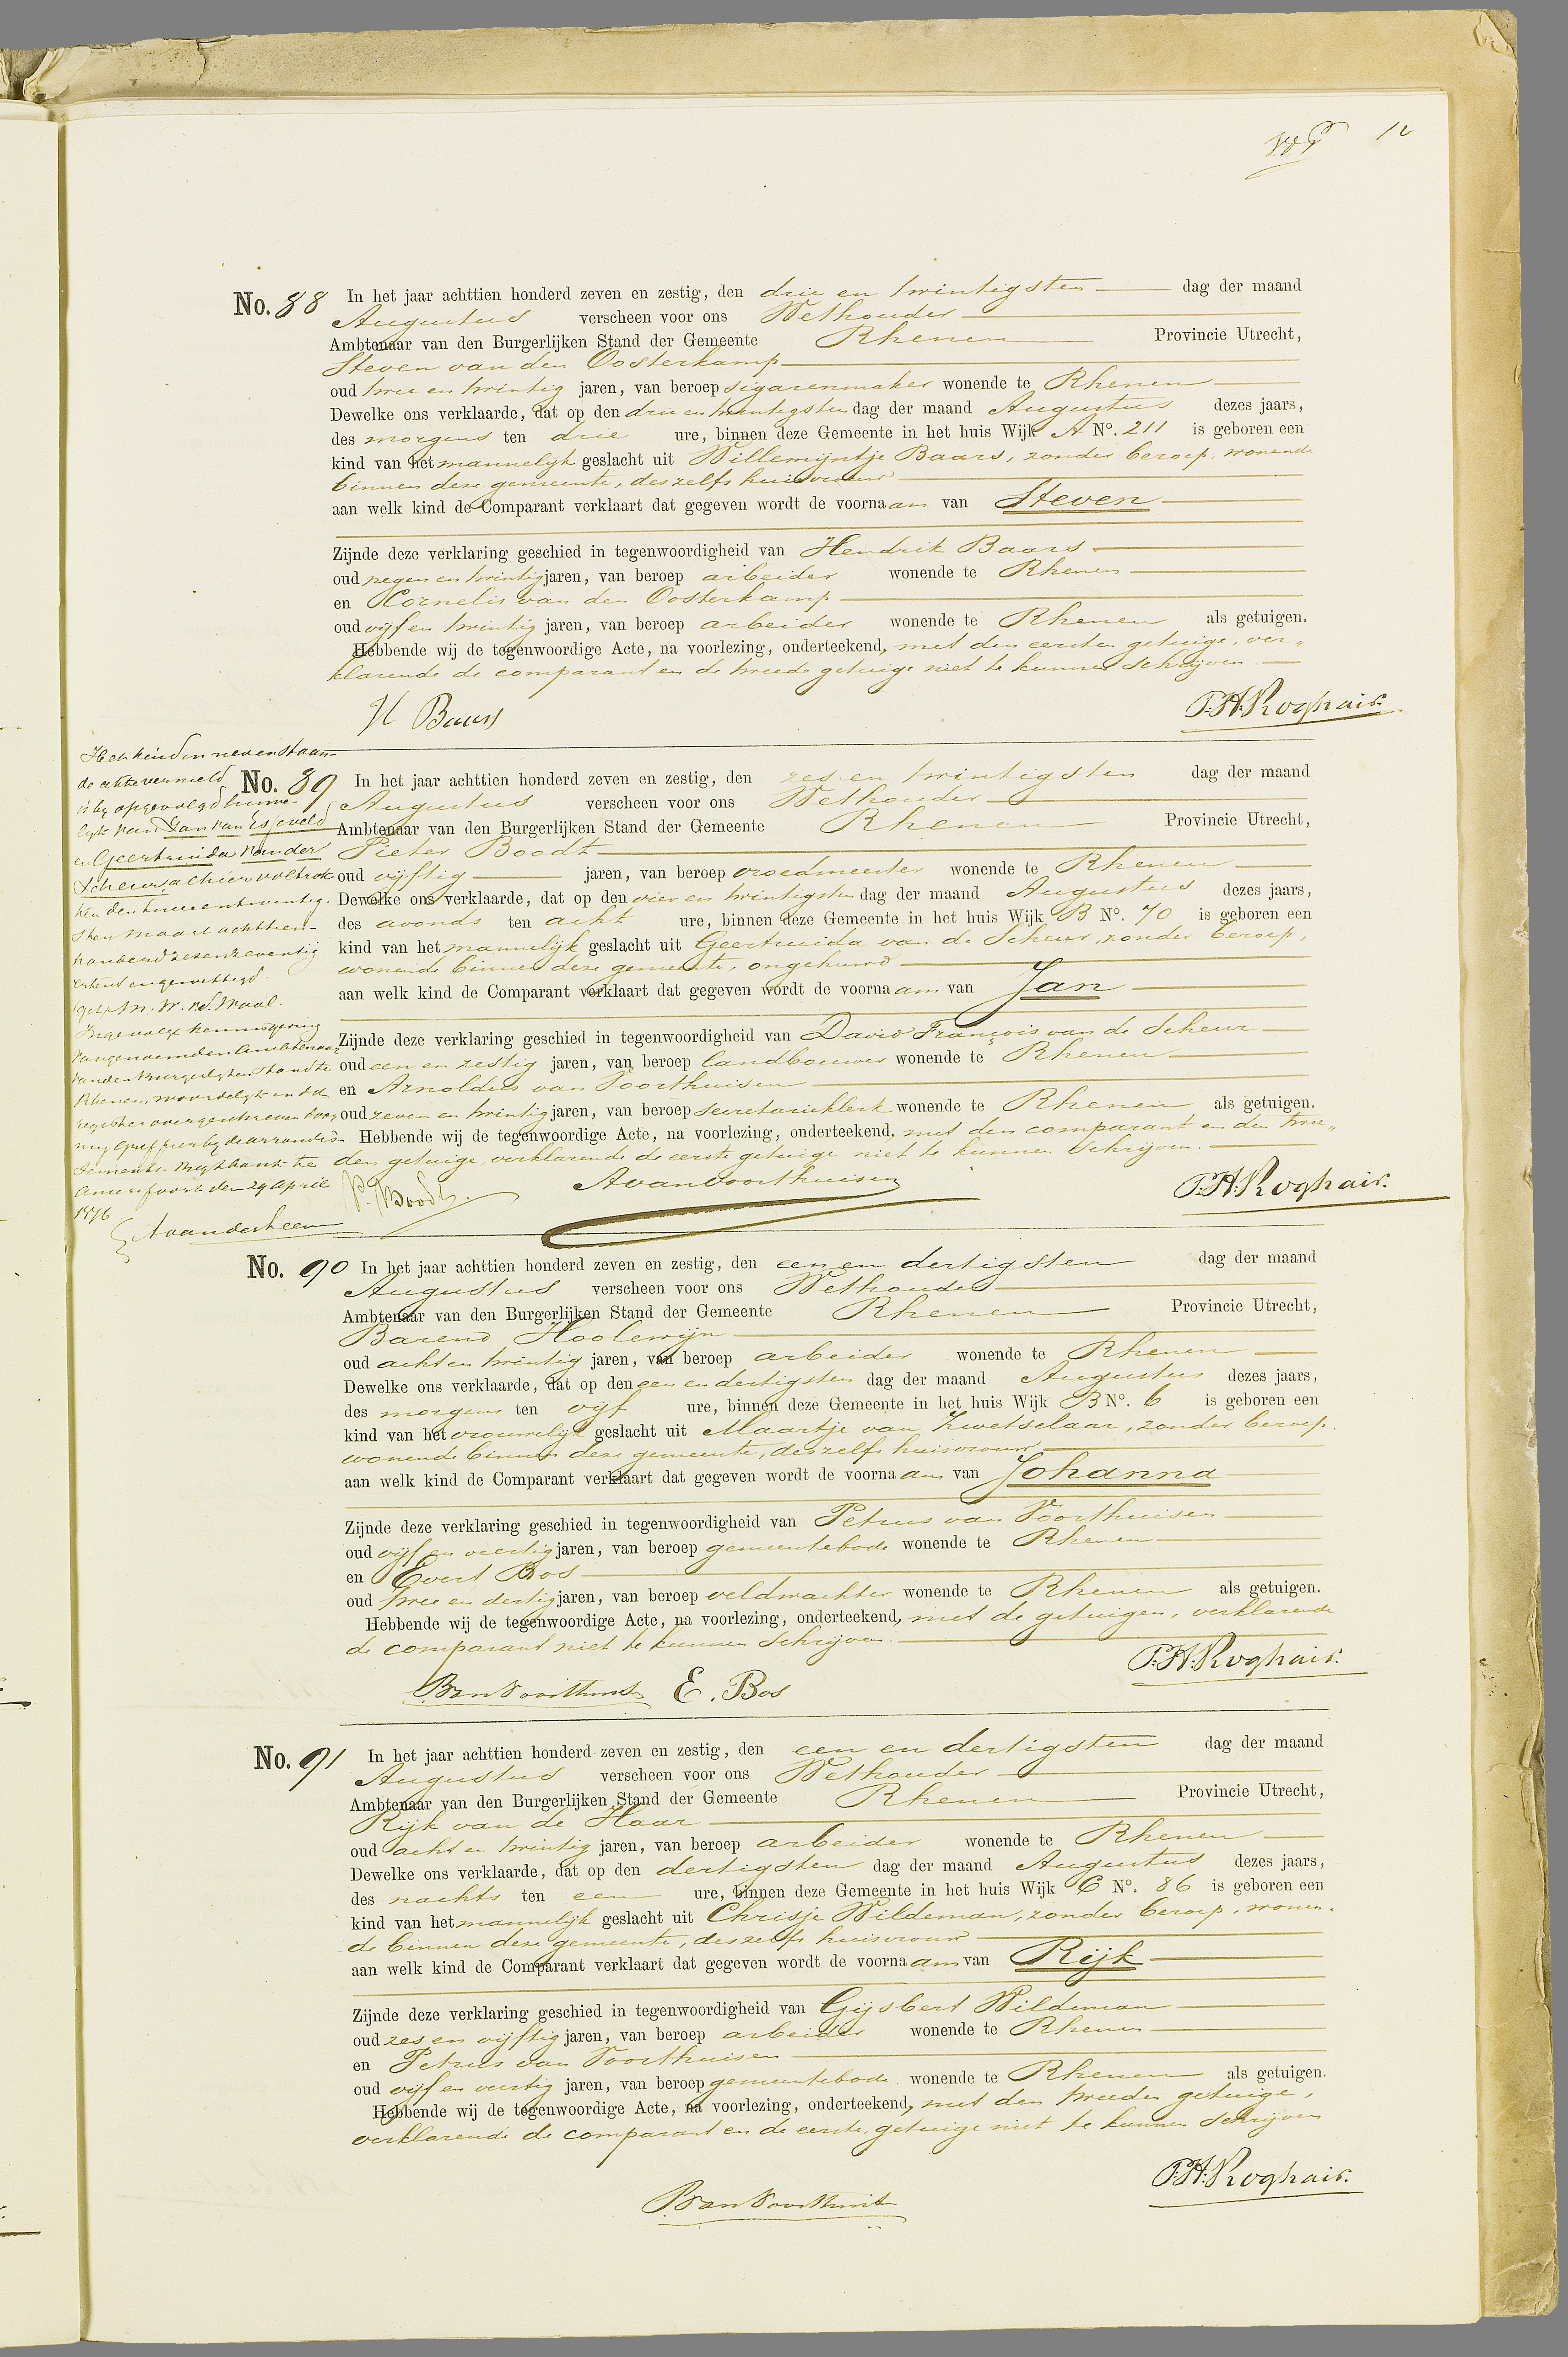 12
No. 88 In het jaar achttien honderd zeven en zestig, den drie en twintigsten dag der maand
Augustus verscheen voor ons Wethouder
Ambtenaar van den Burgerlijken Stand der Gemeente Rhenen Provincie Utrecht,
Steven van den Oosterkamp
oud twee en twintig jaren, van beroep sigarenmaker wonende te Rhenen
Dewelke ons verklaarde, dat op den drie en twintigsten dag der maand Augustus dezes jaars,
des morgens ten drie ure, binnen deze Gemeente in het huis Wijk A No. 211 is geboren een
kind van het mannelijk geslacht uit Willemijntje Baars, zonder beroep, wonende
binnen deze gemeente, deszelfs huisvrouw
aan welk kind de Comparant verklaart dat gegeven wordt de voornaam van Steven
Zijnde deze verklaring geschied in tegenwoordigheid van Hendrik Baars
oud negen en twintig jaren, van beroep arbeider wonende te Rhenen
en Cornelis van den Oosterkamp
oud vijf en twintig jaren, van beroep arbeider wonende te Rhenen als getuigen.
Hebbende wij de tegenwoordige Acte, na voorlezing, onderteekend, met den eersten getuige, ver„
klarende de comparant en de tweede getuige niet te kunnen schrijven.
H Baars T.H. Roghair.
Het kind in nevenstaan-
de akte vermeld
is bij opgevolgd huwe-
lijk van Jan van Esseveld
en Geertruida van der
Scheur, alhier voltrok-
ken den twee en twintig-
sten Maart achttien-
honderd zes en zeventig
erkend en gewettigd.
(get) M. W. v.d. Waal.
Ingevolge kennisgeving
van genoemden Ambtenaar
van den Burgerlijken Stand te
Rhenen, woordelijk in dit
register overgeschreven door
mij Griffier bij de arrondis-
sements-Regtbank te
Amersfoort den 29 April
1876
A van der Leem
No. 89 In het jaar achttien honderd zeven en zestig, den zes en twintigsten dag der maand
Augustus verscheen voor ons Wethouder
Ambtenaar van den Burgerlijken Stand der Gemeente Rhenen Provincie Utrecht,
Pieter Boodt
oud vijftig jaren, van beroep vroedmeester wonende te Rhenen
Dewelke ons verklaarde, dat op den vier en twintigsten dag der maand Augustus dezes jaars,
des avonds ten acht ure, binnen deze Gemeente in het huis Wijk B No. 70 is geboren een
kind van het mannelijk geslacht uit Geertruida van de Scheur, zonder beroep,
wonende binnen deze gemeente, ongehuwd
aan welk kind de Comparant verklaart dat gegeven wordt de voornaam van Jan
Zijnde deze verklaring geschied in tegenwoordigheid van David François van de Scheur
oud een en zestig jaren, van beroep landbouwer wonende te Rhenen
en Arnoldus van Voorthuisen
oud zeven en twintig jaren, van beroep secretarieklerk wonende te Rhenen als getuigen.
Hebbende wij de tegenwoordige Acte, na voorlezing, onderteekend, met den comparant en den twee„
den getuige, verklarende de eerste getuige niet te kunnen schrijven.
P. Boodt. A van Voorthuisen T.H. Roghair.
No. 90 In het jaar achttien honderd zeven en zestig, den een en dertigsten dag der maand
Augustus verscheen voor ons Wethouder
Ambtenaar van den Burgerlijken Stand der Gemeente Rhenen Provincie Utrecht,
Barend Hoolewijn
oud acht en twintig jaren, van beroep arbeider wonende te Rhenen
Dewelke ons verklaarde, dat op den een en dertigsten dag der maand Augustus dezes jaars,
des morgens ten vijf ure, binnen deze Gemeente in het huis Wijk B No. 6 is geboren een
kind van het vrouwelijk geslacht uit Maartje van Zwetselaar, zonder beroep,
wonende binnen deze gemeente, deszelfs huisvrouw
aan welk kind de Comparant verklaart dat gegeven wordt de voornaam van Johanna
Zijnde deze verklaring geschied in tegenwoordigheid van Petrus van Voorthuisen
oud vijf en veertig jaren, van beroep gemeentebode wonende te Rhenen
en Evert Bos
oud twee en dertig jaren, van beroep veldwachter wonende te Rhenen als getuigen.
Hebbende wij de tegenwoordige Acte, na voorlezing, onderteekend, met de getuigen, verklarende
de comparant niet te kunnen schrijven.
P. van Voorthuis E. Bos T.H. Roghair.
No. 91 In het jaar achttien honderd zeven en zestig, den een en dertigsten dag der maand
Augustus verscheen voor ons Wethouder
Ambtenaar van den Burgerlijken Stand der Gemeente Rhenen Provincie Utrecht,
Rijk van de Haar
oud acht en twintig jaren, van beroep arbeider wonende te Rhenen
Dewelke ons verklaarde, dat op den dertigsten dag der maand Augustus dezes jaars,
des nachts ten een ure, binnen deze Gemeente in het huis Wijk C No. 86 is geboren een
kind van het mannelijk geslacht uit Chrisje Wildeman, zonder beroep, wonen-
de binnen deze gemeente, deszelfs huisvrouw
aan welk kind de Comparant verklaart dat gegeven wordt de voornaam van Rijk
Zijnde deze verklaring geschied in tegenwoordigheid van Gijsbert Wildeman
oud zes en vijftig jaren, van beroep arbeider wonende te Rhenen
en Petrus van Voorthuisen
oud vijf en veertig jaren, van beroep gemeentebode wonende te Rhenen als getuigen.
Hebbende wij de tegenwoordige Acte, na voorlezing, onderteekend, met den tweeden getuige,
verklarende de comparant en de eerste getuige niet te kunnen schrijven
P. van Voorthuis T.H. Roghair.